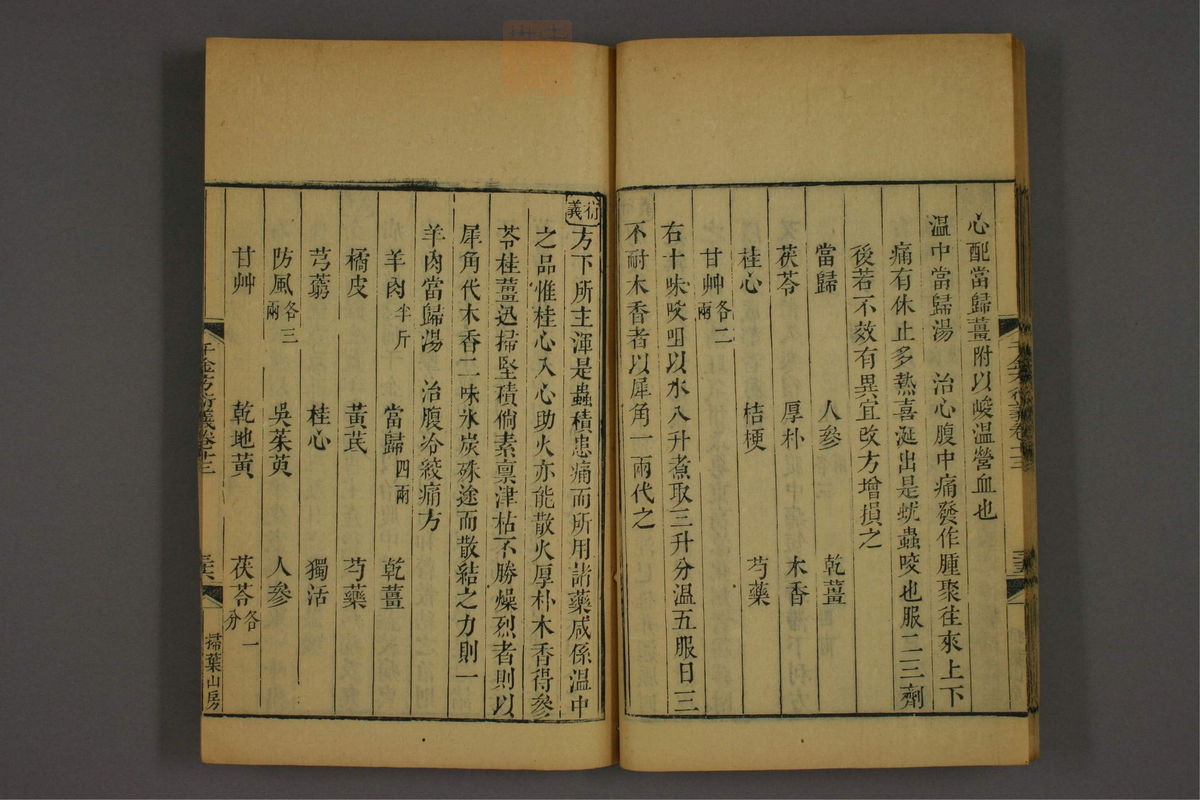 心配當歸薑附以峻溫營血也
溫中當歸湯　治心腹中痛發作腫聚往來上下
痛有休止多熱喜涎出是蚘蟲咬也服二三劑
後若不效有異宜改方增損之
當歸　人參　乾薑
茯苓　厚朴　木香
桂心　桔梗　芍藥
甘艸各二兩
右十味㕮咀以水八升煮取三升分溫五服日三
不耐木香者以犀角一兩代之
衍義
方下所主渾是蟲積患痛而所用諸藥咸係溫中
之品惟桂心入心助火亦能散火厚朴木香得參
苓桂薑迅掃堅積倘素禀津枯不勝燥烈者則以
犀角代木香二味氷炭殊途而散結之力則一
羊肉當歸湯　治腹冷絞痛方
羊肉半斤　當歸四兩　乾薑
橘皮　黃芪　芍藥
芎藭　桂心　獨活
防風各三兩　吳茱萸　人參
甘艸　乾地黃　茯苓各一分
千金方衍義卷十三
掃葉山房